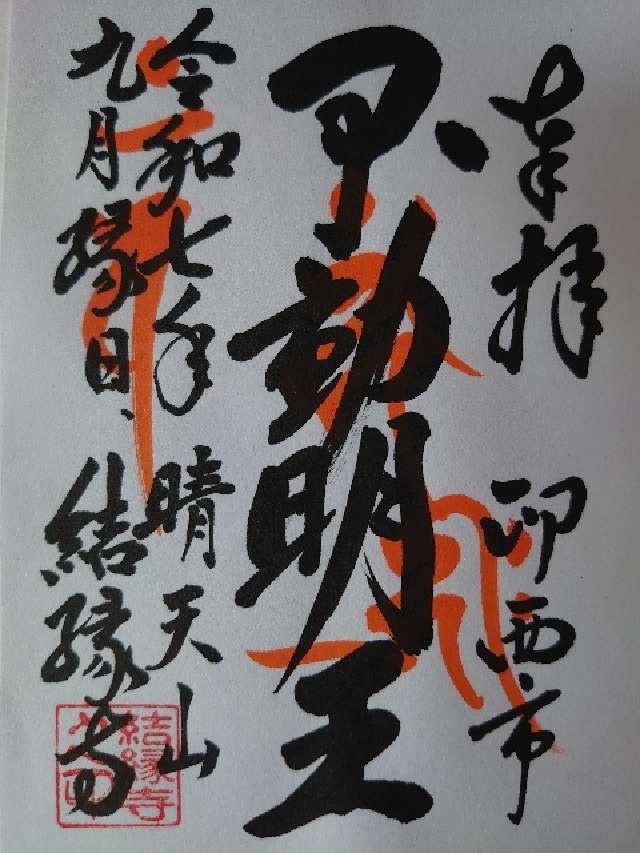 奉拝 印西市
不動明王
令和七年 晴天山
九月縁日、結縁寺
結縁寺